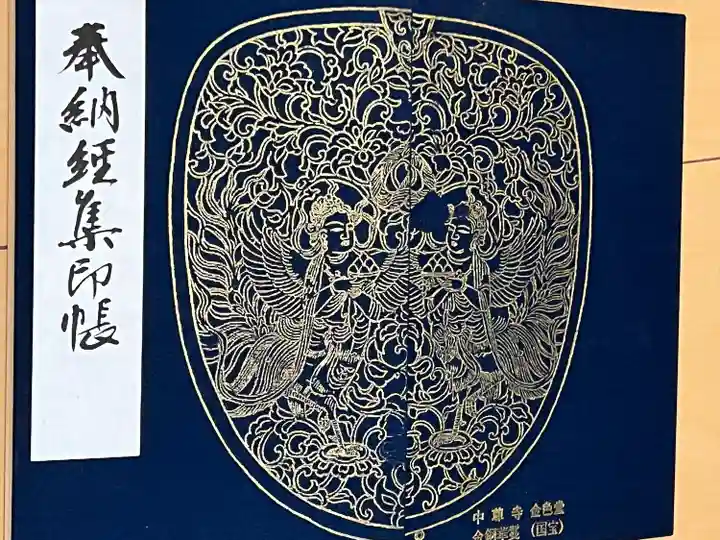 奉納経集印帳
中尊寺 金色堂
金銅華鬘 (国宝)